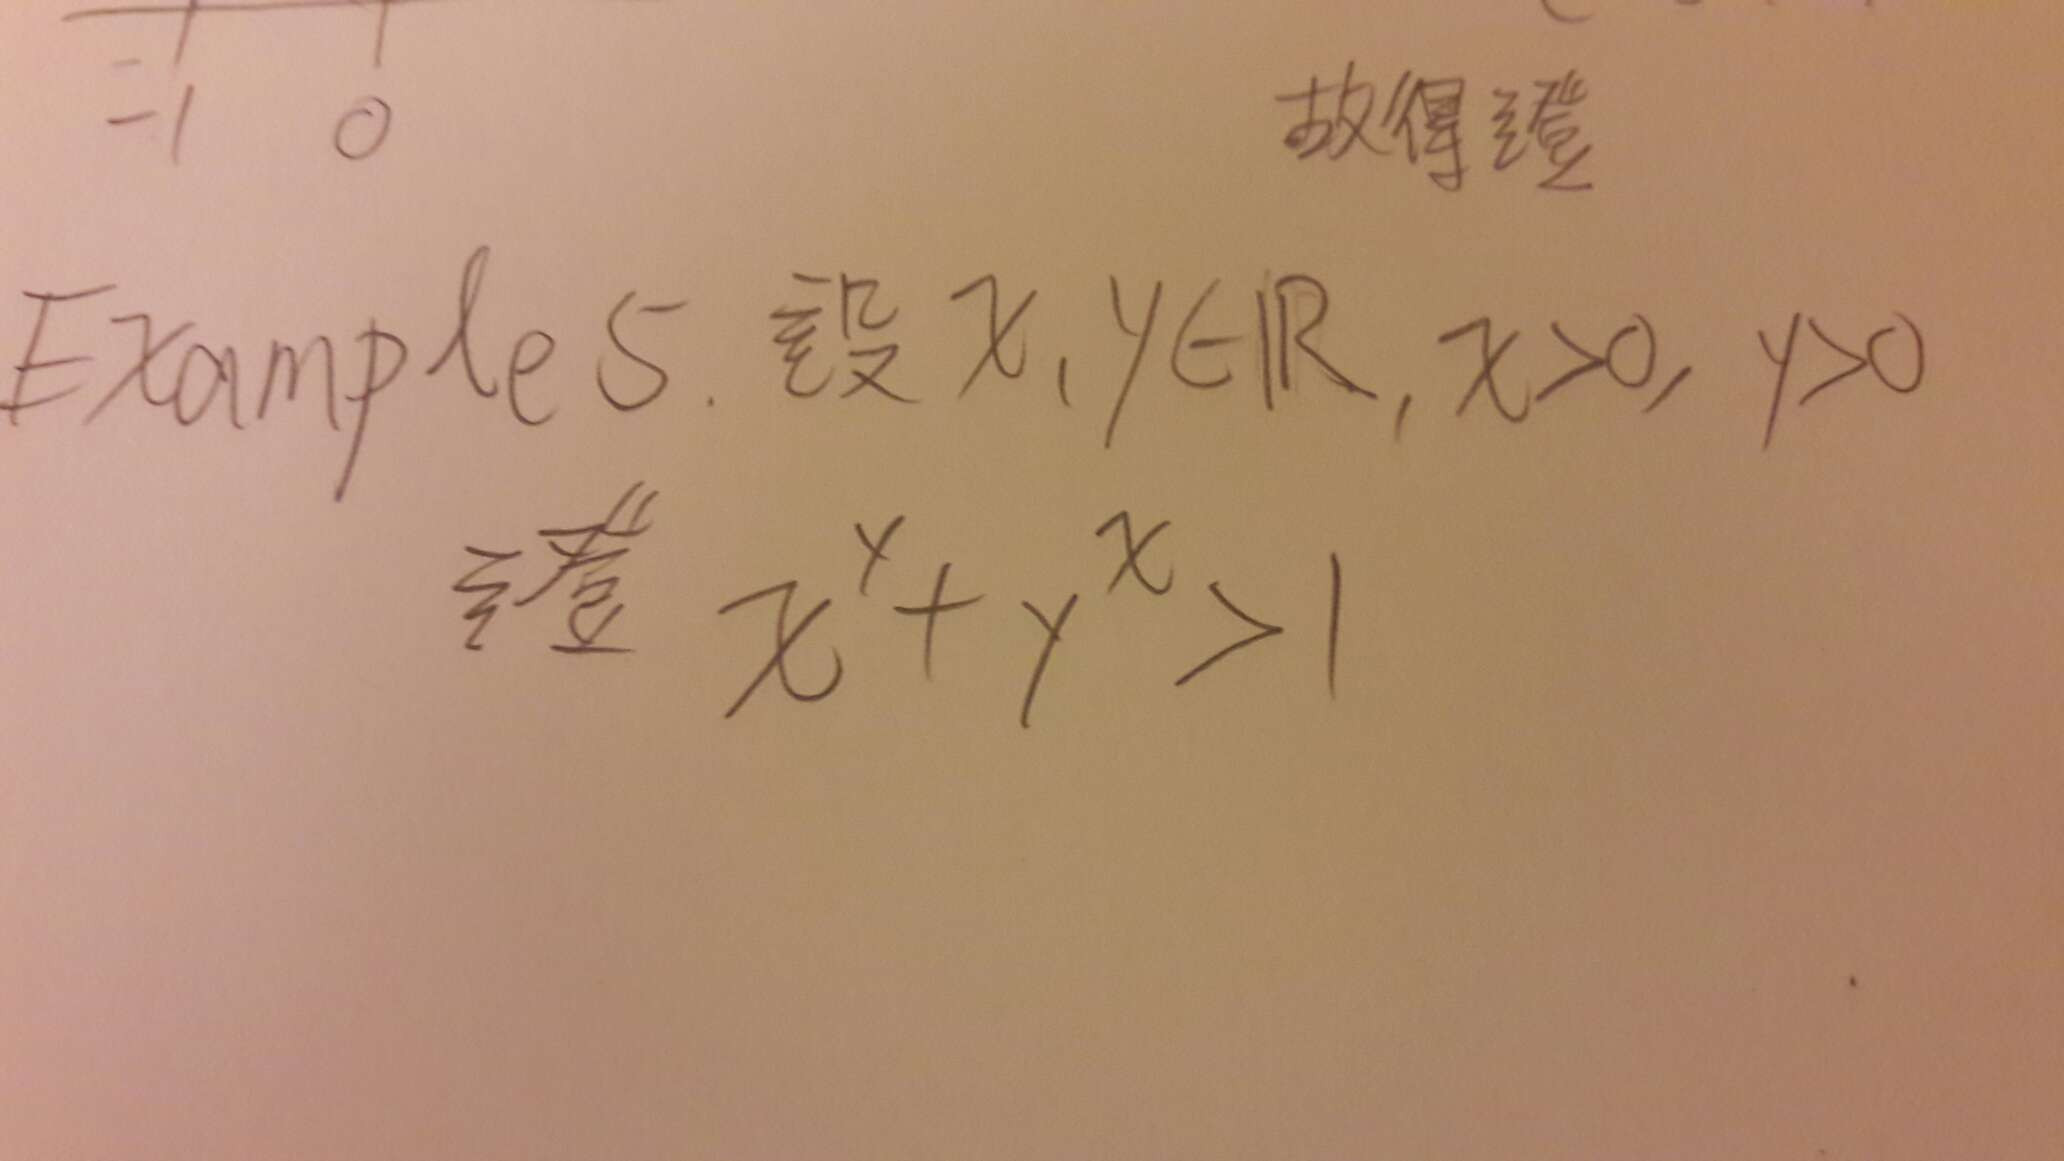 -1 0
故得證
Example 5. 設 x, y∈ℝ, x>0, y>0
證 x^y + y^x > 1